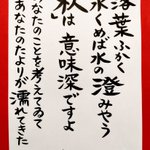 落葉ふかく
水くめば水の澄みやう
秋は意味深ですよ」
あなたのことを考えてゐて
あなたのたよりが濡れてきた